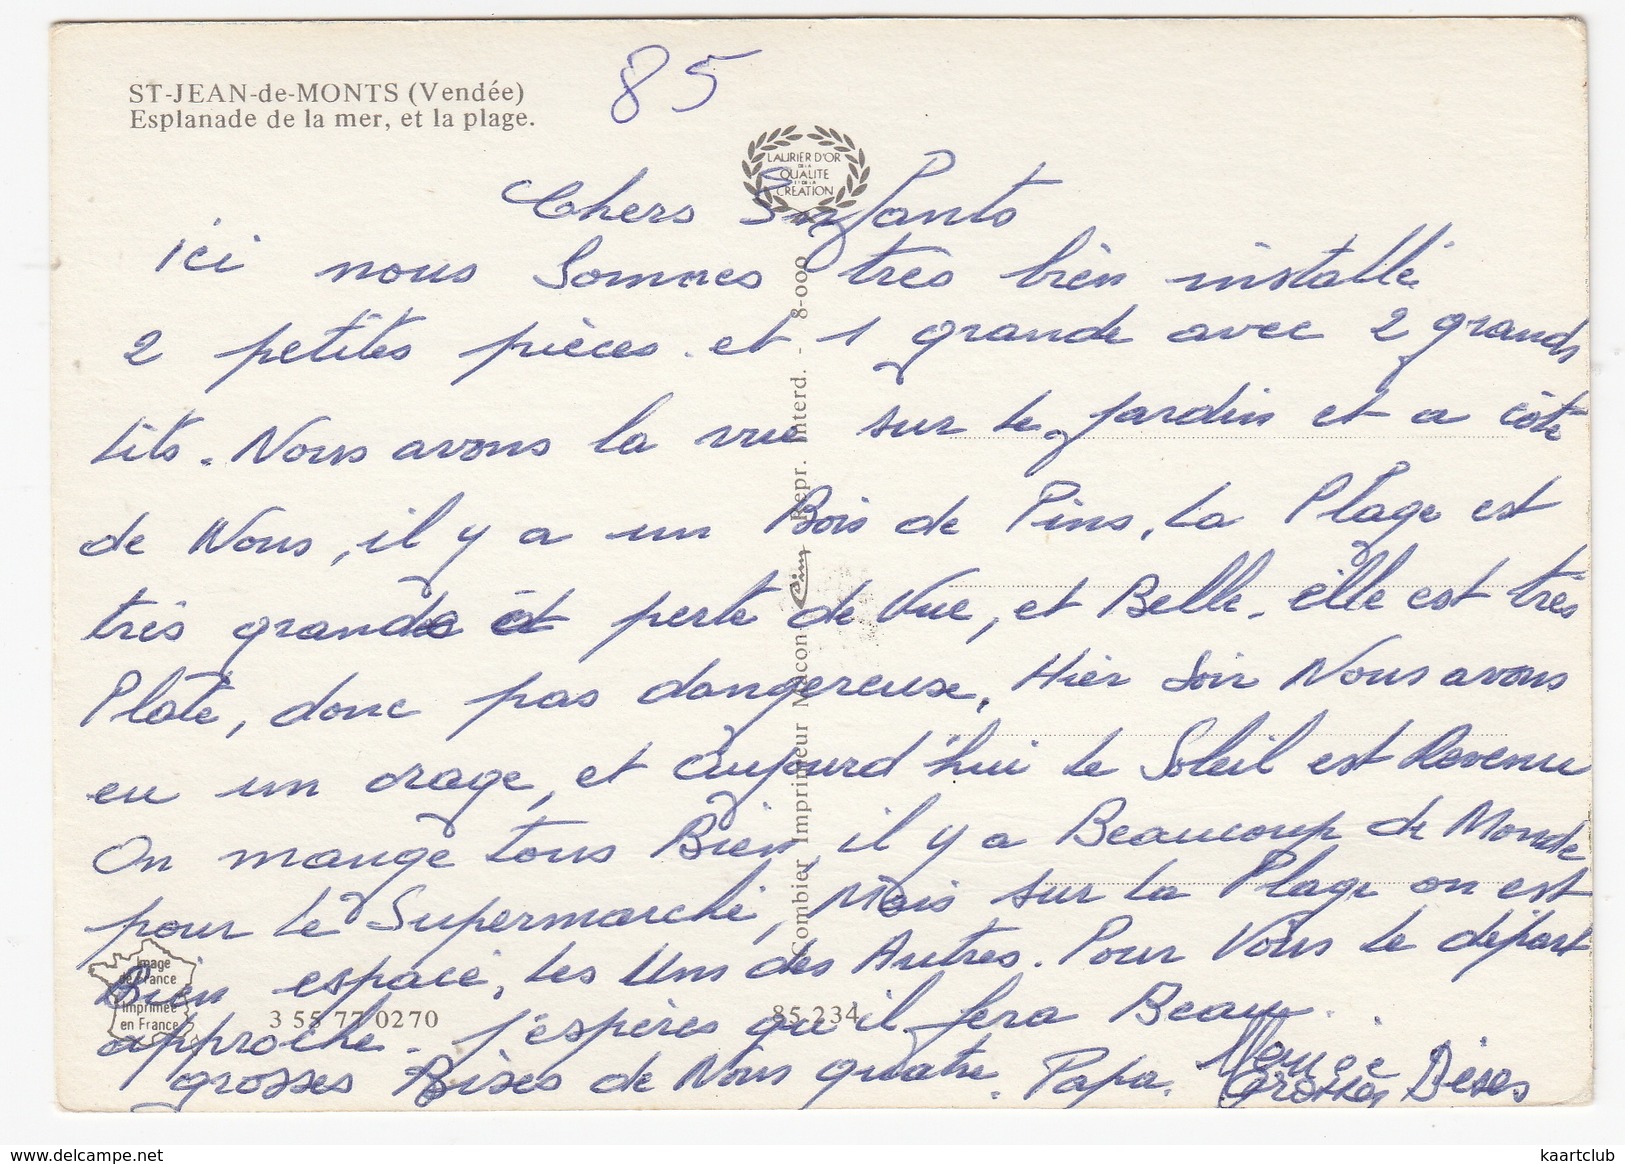 85
ST-JEAN-de-MONTS (Vendée)
Esplanade de la mer, et la plage.
LAURIER D'OR
DE LA
QUALITE
ET DE LA
CREATION
Chers Enfants
ici nous Sommes très bien installé
2 petites pièces et 1 grande avec 2 grands
lits. Nous avons la vue sur le jardin et a côté
de Nous, il y a un Bois de Pins. La Plage est
très grande et perte de Vue, et Belle. elle est très
Plate, donc pas dangereuse. Hier Soir Nous avons
eu un orage, et aujourd'hui le Soleil est Revenu
On mange tous Bien, il y a Beaucoup de Monde
pour le Supermarché, Mais sur la Plage on est
Bien espacé, les Uns des Autres. Pour Vous le départ
approche. J'espères qu'il fera Beau.
grosses Bises de Nous quatre. Papa.
Grosses Bises
Image
de France
Imprimée
en France
3 55 77 0270
85.234
Combier Imprimeur Macon Cim Repr. Interd. - 8-000
delcampe.net
kaartclub